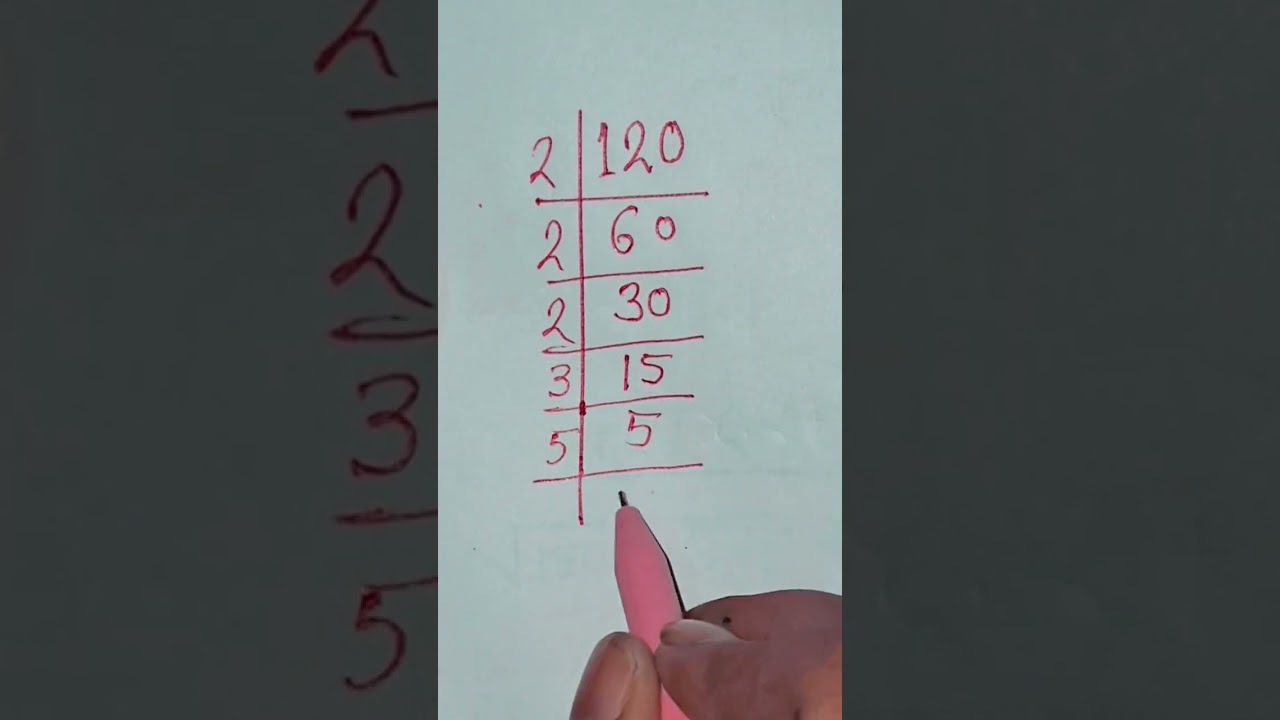 2 120
2 60
2 30
3 15
5 5